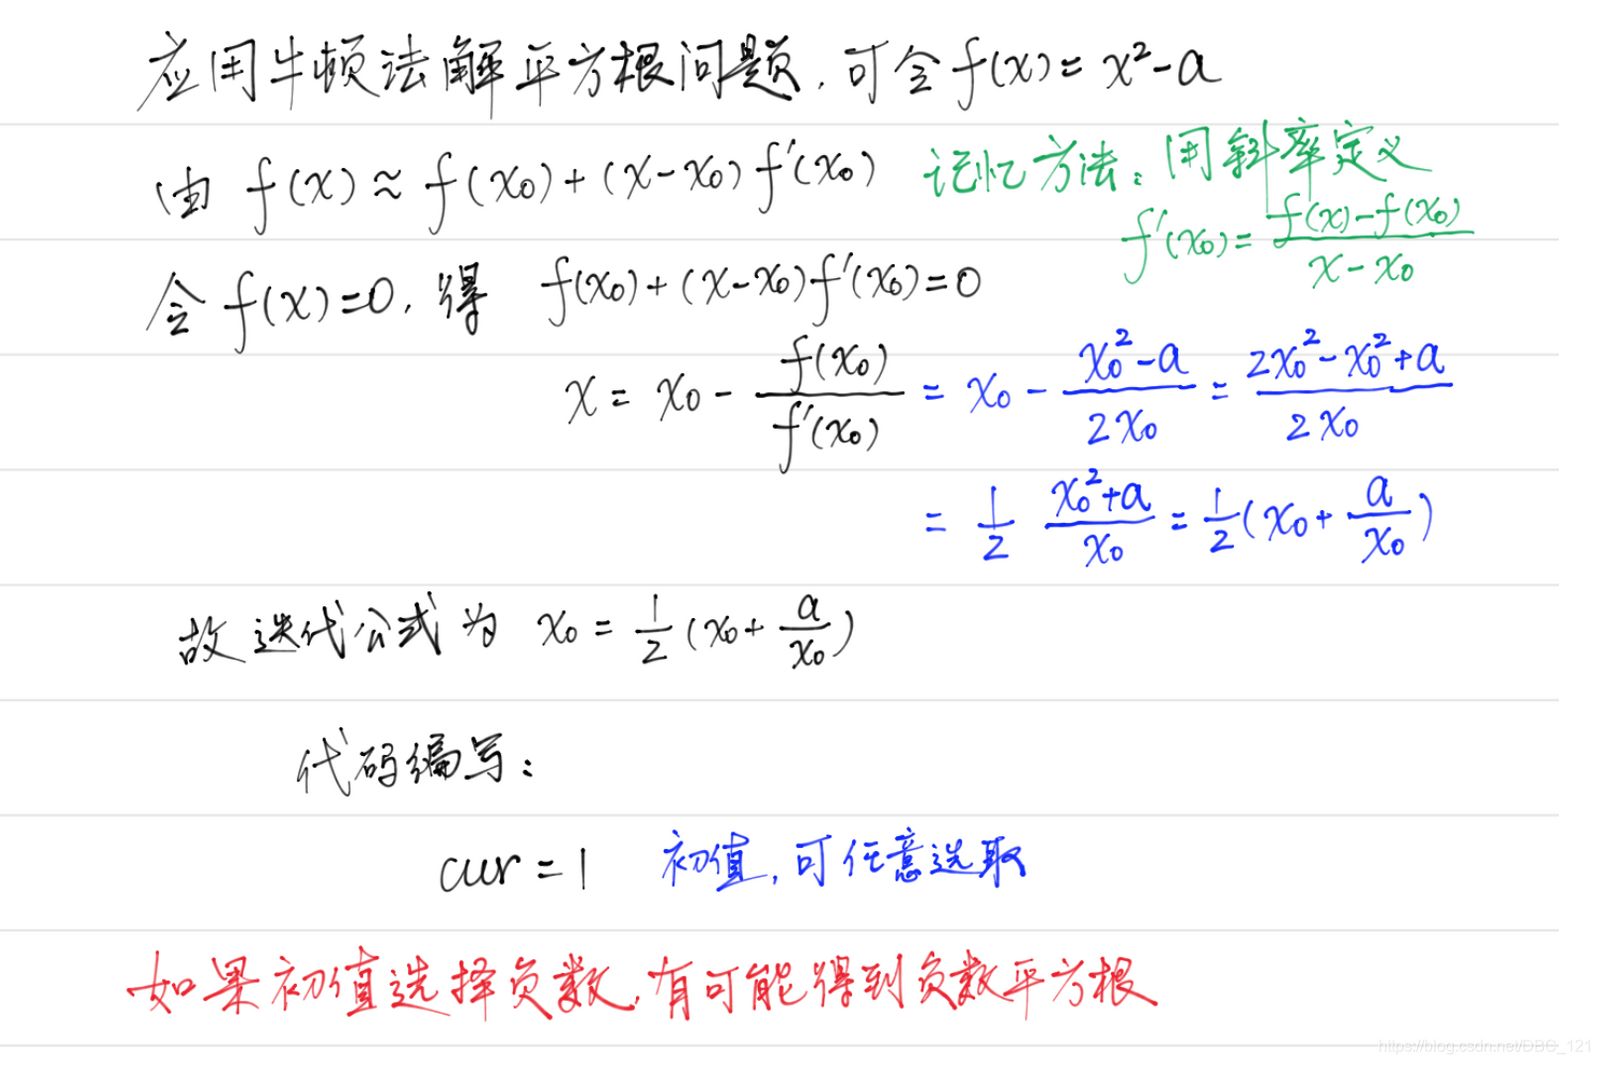 应用牛顿法解平方根问题,可令f(x)= x²-a
由 f(x)≈f(x₀)+(x-x₀)f'(x₀) 记忆方法:用斜率定义
f'(x₀)= (f(x)-f(x₀))/(x-x₀)
令f(x)=0,得 f(x₀)+(x-x₀)f'(x₀)=0
x = x₀ - f(x₀)/f'(x₀) = x₀ - (x₀²-a)/(2x₀) = (2x₀²-x₀²+a)/(2x₀)
= 1/2 (x₀²+a)/x₀ = 1/2(x₀+ a/x₀)
故迭代公式为 x₀ = 1/2(x₀+ a/x₀)
代码编写:
cur=1 初值,可任意选取
如果初值选择负数,有可能得到负数平方根
https://blog.csdn.net/DBC_121